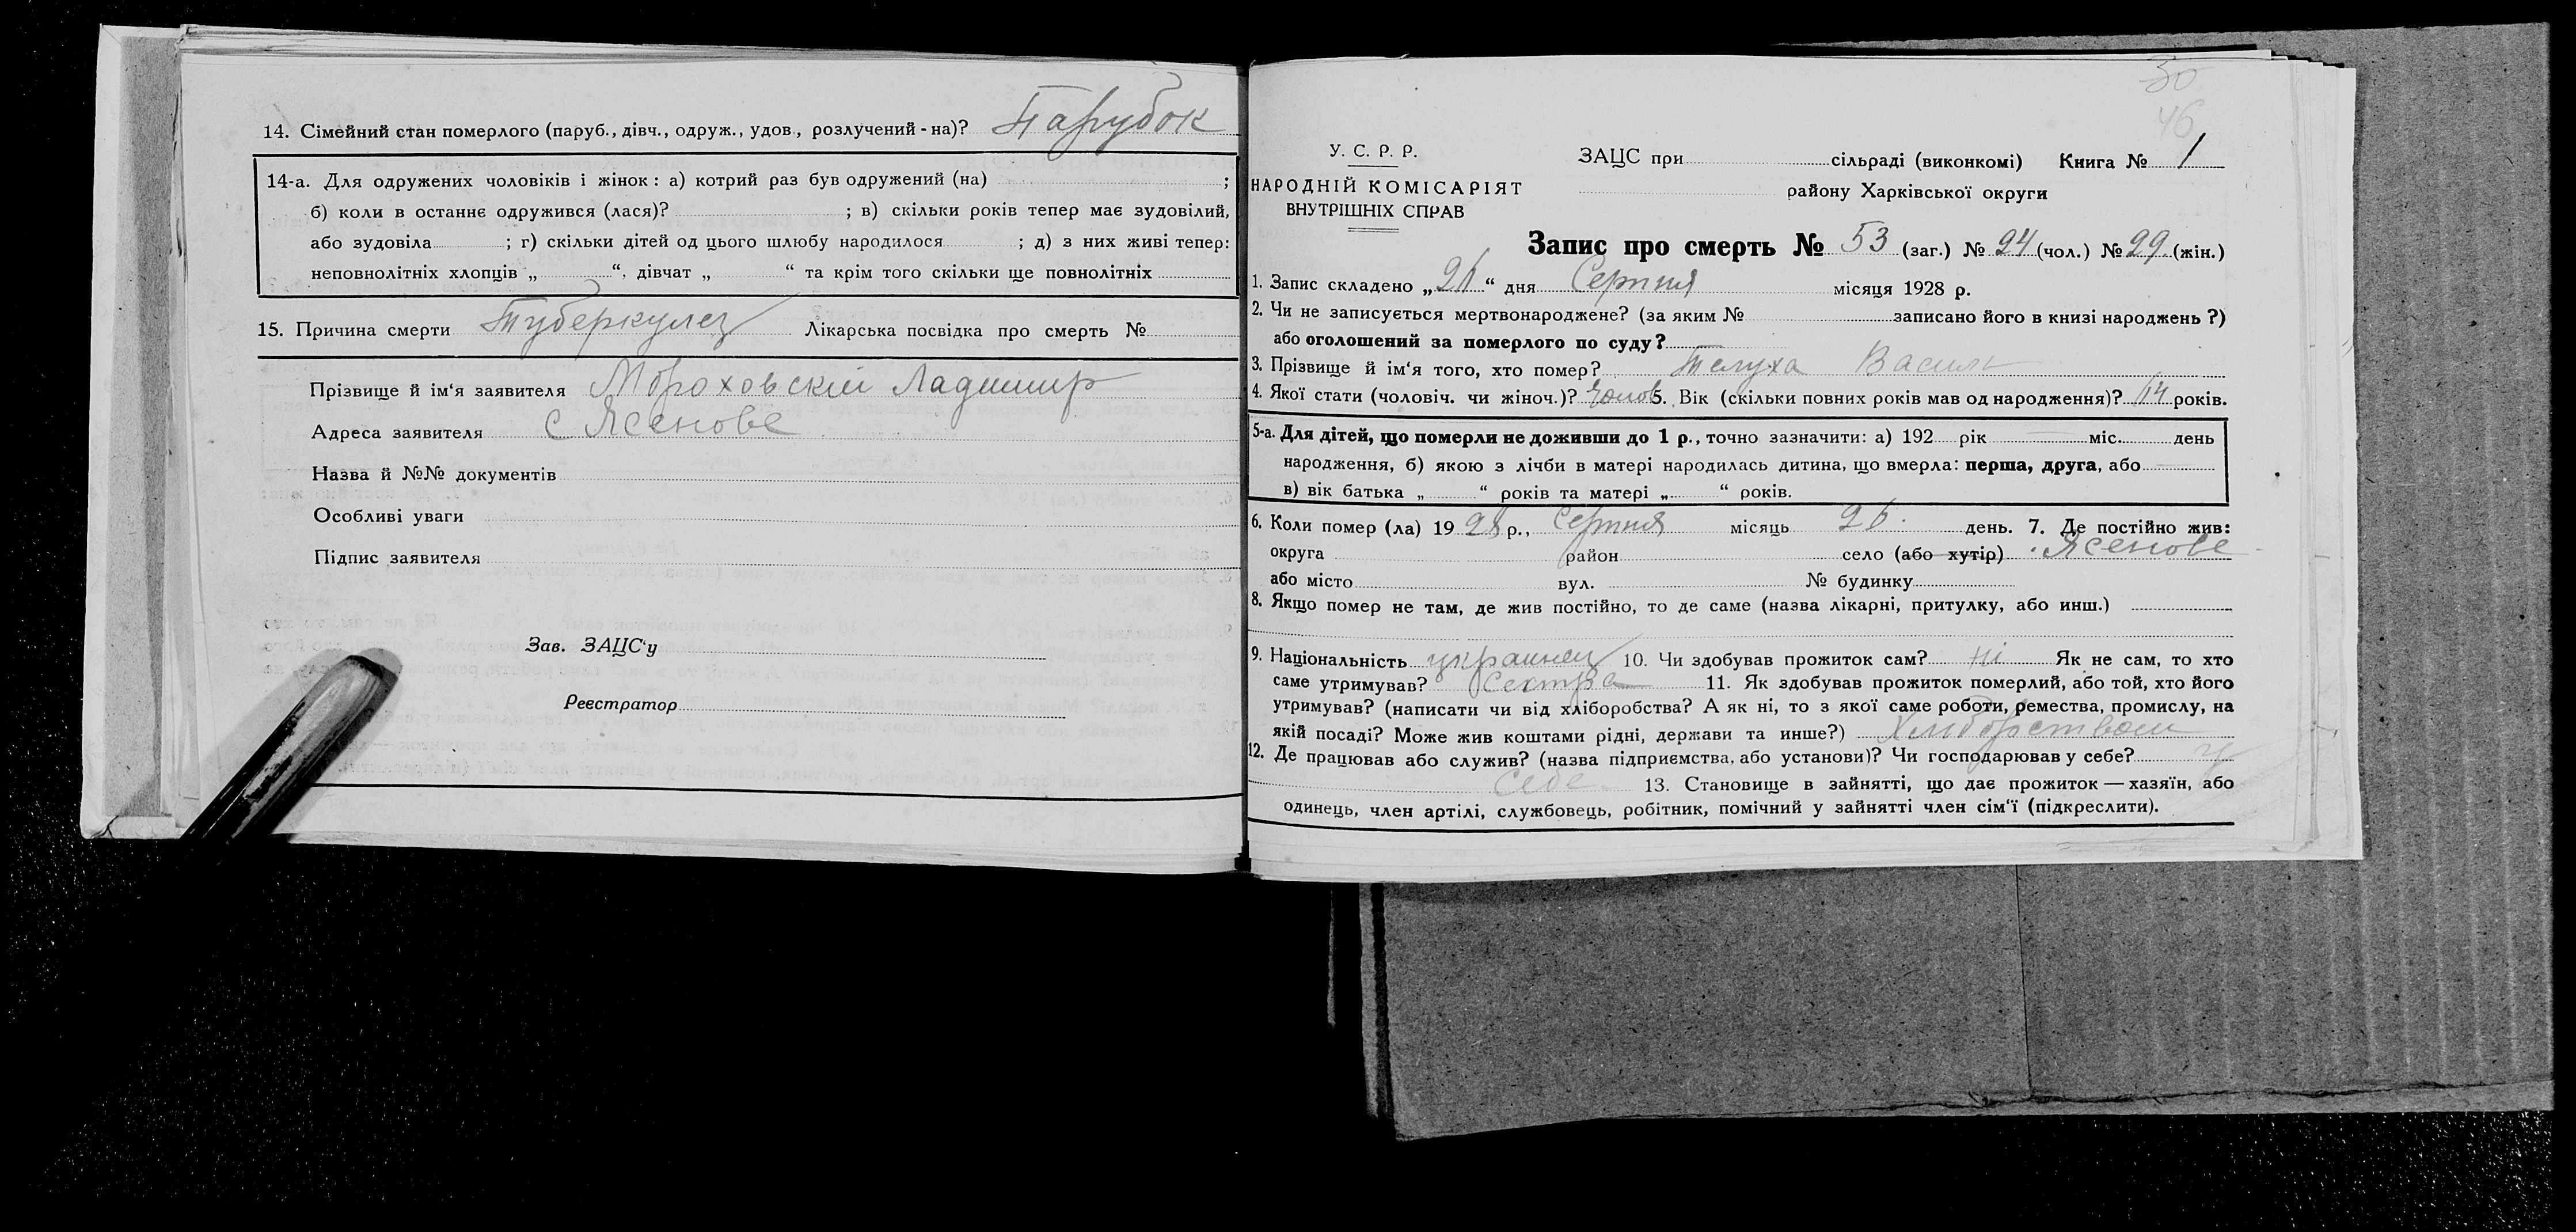 14. Сімейний стан померлого (паруб., дівч., одруж., удов., розлучений-на)? Парубок
14-а. Для одружених чоловіків і жінок: а) котрий раз був одружений (на) ;
б) коли в останнє одружився (лася)? ; в) скільки років тепер має зудовілий,
або зудовіла ; г) скільки дітей од цього шлюбу народилося ; д) з них живі тепер:
неповнолітніх хлопців „ “, дівчат „ “ та крім того скільки ще повнолітніх
15. Причина смерти Туберкулез Лікарська посвідка про смерть №
Прізвище й ім'я заявителя Мороховскій Ладимир
Адреса заявителя с Ясенове
Назва й №№ документів
Особливі уваги
Підпис заявителя
Зав. ЗАЦС'у
Реєстратор
30
46
У. С. Р. Р.
НАРОДНІЙ КОМІСАРІЯТ
ВНУТРІШНІХ СПРАВ
ЗАЦС при сільраді (виконкомі) Книга № 1
району Харківської округи
Запис про смерть № 53 (заг.) № 24 (чол.) № 29. (жін.)
1. Запис складено „26“ дня Серпня місяця 1928 р.
2. Чи не записується мертвонароджене? (за яким № записано його в книзі народжень?)
або оголошений за померлого по суду?
3. Прізвище й ім'я того, хто помер? Телуха Василь
4. Якої стати (чоловіч. чи жіноч.)? Чолов 5. Вік (скільки повних років мав од народження)? 14 років.
5-а. Для дітей, що померли не доживши до 1 р., точно зазначити: а) 192 рік міс. день
народження, б) якою з лічби в матері народилась дитина, що вмерла: перша, друга, або
в) вік батька „ “ років та матері „ “ років.
6. Коли помер (ла) 1928 р., Серпня місяць 26. день. 7. Де постійно жив:
округа район село (або хутір) Ясенове
або місто вул. № будинку
8. Якщо помер не там, де жив постійно, то де саме (назва лікарні, притулку, або инш.)
9. Національність украинец 10. Чи здобував прожиток сам? ні Як не сам, то хто
саме утримував? Сестра 11. Як здобував прожиток померлий, або той, хто його
утримував? (написати чи від хліборобства? А як ні, то з якої саме роботи, ремества, промислу, на
якій посаді? Може жив коштами рідні, держави та инше?)
12. Де працював або служив? (назва підприємства, або установи)? Чи господарював у себе? у
себе 13. Становище в зайнятті, що дає прожиток — хазяїн, або
одинець, член артілі, службовець, робітник, помічний у зайнятті член сім'ї (підкреслити).